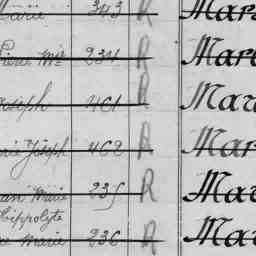 Marie 343 R Mar
Pierre Mie 234 R Mar
Joseph 461 R Mar
Joseph 462 R Mar
Marie 235 R Mar
Hippolyte
Marie 236 R Mar